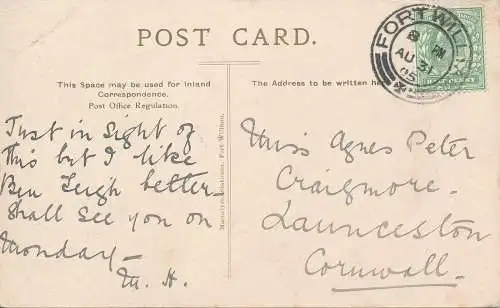 POST CARD.
This Space may be used for Inland
Correspondence.
Post Office Regulation.
The Address to be written here
FORT WILLI
8 PM
AU 31
05
Just in sight of
this but I like
Ben Leigh better
Shall see you on
Monday—
M. H.
Miss Agnes Peter
Craigmore.
Launceston
Cornwall.